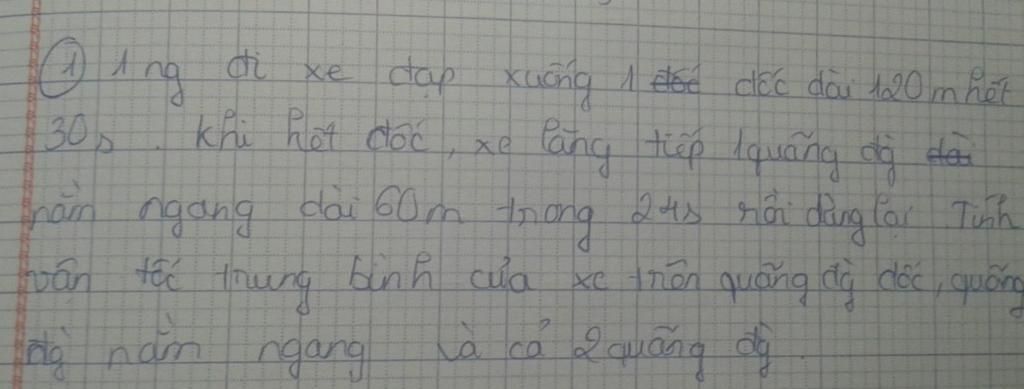 ① 1 ng đi xe đạp xuống 1 dốc dài 120m hết
30s. Khi hết dốc, xe lăng tiếp 1 quãng đg
nằm ngang dài 60m trong 24s rồi dừng lại Tính
vận tốc trung bình của xe trên quãng đg dốc, quãng
đg nằm ngang và cả 2 quãng đg.